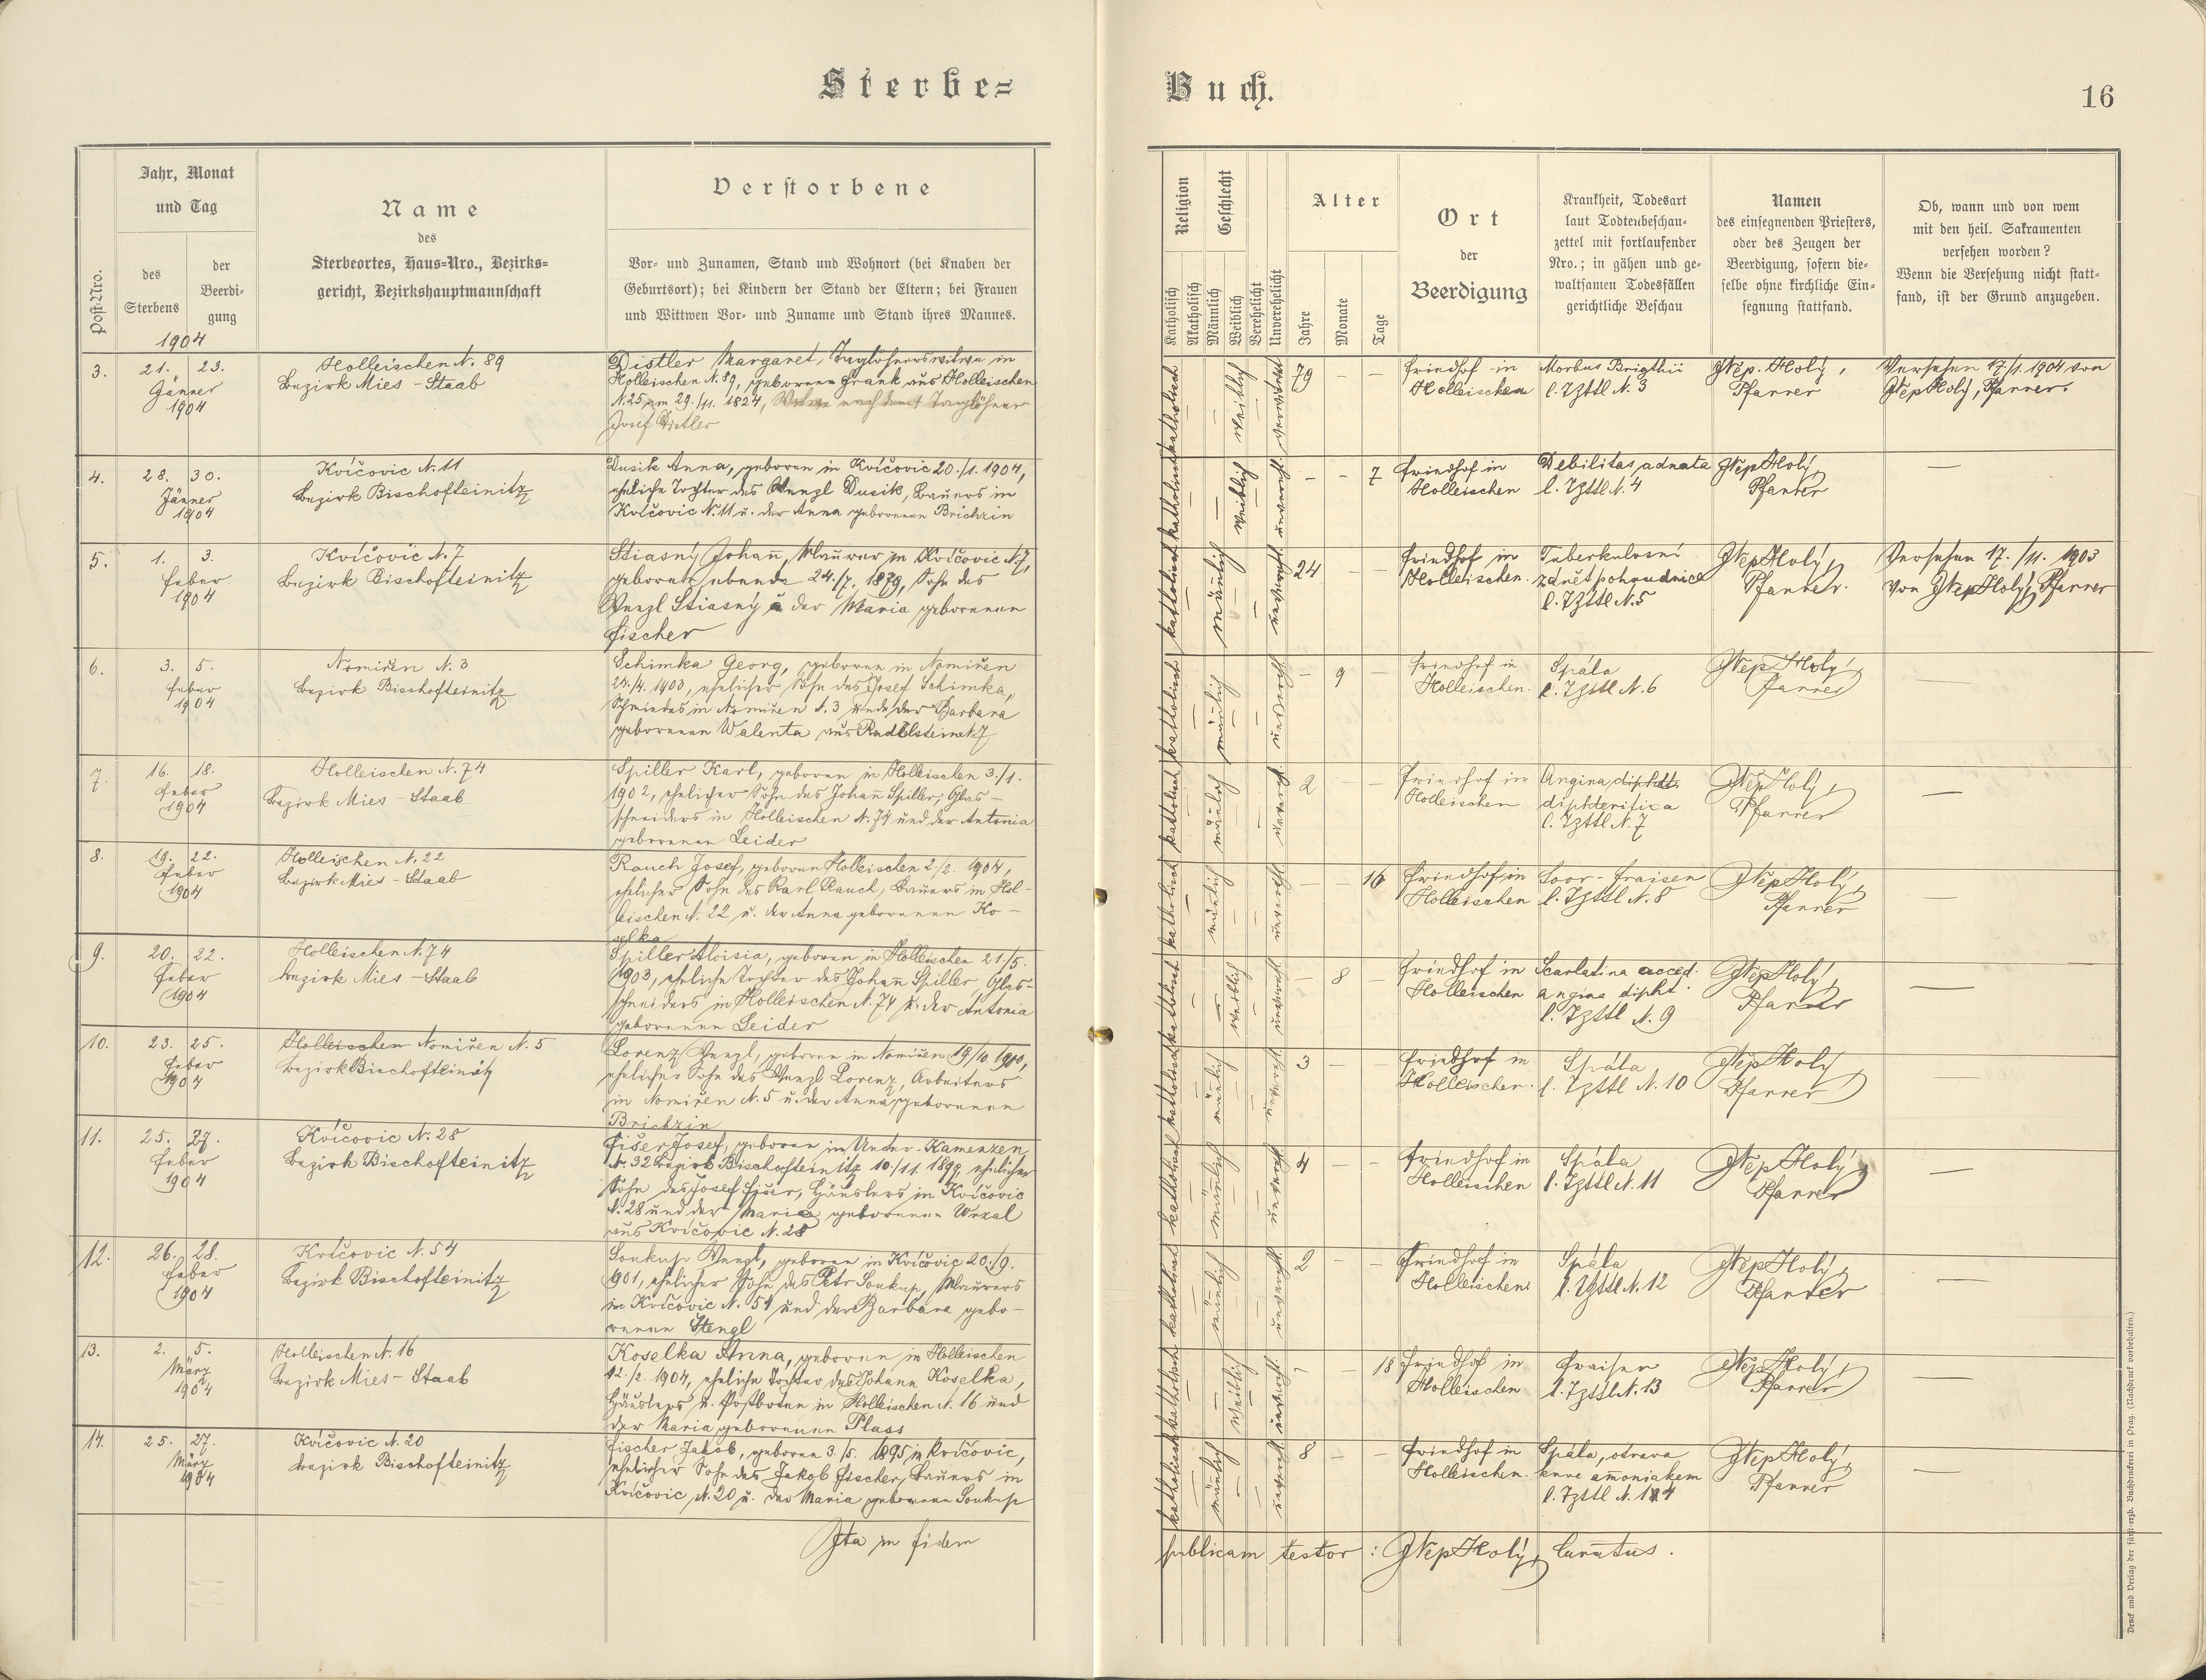 Sterbe=
Buch.
16
Post-Nro.
Jahr, Monat
und Tag
des
Sterbens
der
Beerdi-
gung
1904
Name
des
Sterbeortes, Haus-Nro., Bezirks-
gericht, Bezirkshauptmannschaft
Verstorbene
Vor- und Zunamen, Stand und Wohnort (bei Knaben der
Geburtsort); bei Kindern der Stand der Eltern; bei Frauen
und Wittwen Vor- und Zuname und Stand ihres Mannes.
Religion
Katholisch
Akatholisch
Geschlecht
Männlich
Weiblich
Verehelicht
Unverehelicht
Alter
Jahre
Monate
Tage
Ort
der
Beerdigung
Krankheit, Todesart
laut Todtenbeschau-
zettel mit fortlaufender
Nro.; in gähen und ge-
waltsamen Todesfällen
gerichtliche Beschau
Namen
des einsegnenden Priesters,
oder des Zeugen der
Beerdigung, sofern die-
selbe ohne kirchliche Ein-
segnung stattfand.
Ob, wann und von wem
mit den heil. Sakramenten
versehen worden?
Wenn die Versehung nicht statt-
fand, ist der Grund anzugeben.
3. 21. 23.
Jänner
1904
Holleischen N. 89
Bezirk Mies - Staab
Distler Margaret, Taglöhnerswitwe in
Holleischen N. 89, geborenen Frank aus Holleischen
N. 25 am 29./11. 1824, Witwe nach dem † Taglöhner
Josef Distler
katholisch — weiblich — verwitwet
79 — —
Friedhof in
Holleischen
Morbus Brigthii
l. Tzttl N. 3
JNep. Holý,
Pfarrer
Versehen 17/1 1904 von
JNepHolý, Pfarrer.
4. 28. 30.
Jänner
1904
Kvíčovic N. 11
Bezirk Bischofteinitz
Dusik Anna, geboren in Kvíčovic 20./1. 1904,
eheliche Tochter des Wenzl Dusik, Bauers in
Kvíčovic N. 11 u. der Anna geborenen Brichzin
katholisch — weiblich — unverehl.
- - 7
Friedhof in
Holleischen
Debilitas adnata
l. Tzttl N. 4
JNepHolý,
Pfarrer
—
5. 1. 3.
Feber
1904
Kvíčovic N. 7
Bezirk Bischofteinitz
Stiasný Johañ, Maurer in Kvíčovic N. 7,
geboren ebenda 24./7. 1879, Sohn des
Wenzl Stiasný u der Maria geborenen
Fischer
katholisch — mäñlich — unverehl.
24 — —
Friedhof in
Holleischen.
Tuberkulosní
zánět pohrudnice
l. Tzttl N. 5
JNepHolý,
Pfarrer.
Versehen 17./11. 1903
von JNepHolý, Pfarrer
6. 3. 5.
Feber
1904
Nomiřen N. 3
Bezirk Bischofteinitz
Schimka Georg, geboren in Nomiřen
24./4. 1903, ehelicher Sohn des Josef Schimka,
Schmiedes in Nomiřen N. 3 und der Barbara
geborenen Walenta aus
katholisch — mäñlich — unverehl.
— 9 —
Friedhof in
Holleischen.
Spála
l. Tzttl N. 6
JNepHolý,
Pfarrer
—
7. 16. 18.
Feber
1904
Holleischen N. 74
Bezirk Mies - Staab
Spiller Karl, geboren in Holleischen 3./1.
1902, ehelicher Sohn des Johañ Spiller, Glas-
schneiders in Holleischen N. 74 und der Antonia
geborenen Leider
katholisch — mäñlich — unverehl.
2 — —
Friedhof in
Holleischen
Angina
diphderitica
l. Tzttl N. 7
JNepHolý,
Pfarrer
—
8. 19. 22.
Feber
1904
Holleischen N. 22
Bezirk Mies - Staab
Rauch Josef, geboren Holleischen 2./2. 1904,
ehelicher Sohn des Karl Rauch, Bauers in Hol-
leischen N. 22 u. der Anna geborenen Ko-
selka
katholisch — mäñlich — unverehl.
— — 16
Friedhof in
Holleischen
Soor - Fraisen
l. Tzttl N. 8
JNepHolý,
Pfarrer
—
9. 20. 22.
Feber
1904
Holleischen N. 74
Bezirk Mies - Staab
Spiller Aloisia, geboren in Holleischen 21./5.
1903, eheliche Tochter des Johañ Spiller, Glas-
schneiders in Holleischen N. 74 u. der Antonia
geborenen Leider
katholisch — weiblich — unverehl.
— 8 —
Friedhof in
Holleischen
Scarlatina acced.
angina dipht.
l. Tzttl N. 9
JNepHolý,
Pfarrer
—
10. 23. 25.
Feber
1904
Holleischen Nomiřen N. 5
Bezirk Bischofteinitz
Lorenz Wenzl, geboren in Nomiřen 19/10. 1900,
ehelicher Sohn des Wenzl Lorenz, Arbeiters
in Nomiřen N. 5 u. der Anna geborenen
Brichzin
katholisch — mäñlich — unverehl.
3 — —
Friedhof in
Holleischen.
Spála
l. Tzttl N. 10
JNepHolý,
Pfarrer
—
11. 25. 27.
Feber
1904
Kvíčovic N. 28
Bezirk Bischofteinitz
Fišer Josef, geboren in Unter-Kamenzen
N. 32 Bezirk Bischofteinitz 10/11. 1899, ehelicher
Sohn des Josef Fišer, Häuslers in Kvíčovic
N. 28 und der Maria geborenen
aus Kvíčovic N. 28
katholisch — mäñlich — unverehl.
4 — —
Friedhof in
Holleischen
Spála
l. Tzttl N. 11
JNepHolý,
Pfarrer
—
12. 26. 28.
Feber
1904
Kvíčovic N. 54
Bezirk Bischofteinitz
Soukup Wenzl, geboren in Kvíčovic 20./9.
1901, ehelicher Sohn des Petr Soukup, Maurers
in Kvíčovic N. 54 und der Barbara gebo-
renen Stengl
katholisch — mäñlich — unverehl.
2 — —
Friedhof in
Holleischen
Spála
l. Tzttl N. 12
JNepHolý,
Pfarrer
—
13. 2. 5.
März
1904
Holleischen N. 16
Bezirk Mies - Staab
Koselka Anna, geboren in Holleischen
12./2. 1904, eheliche Tochter des Johann Koselka,
Häuslers u. Postboten in Holleischen N. 16 und
der Maria geborenen Plass
katholisch — weiblich — unverehl.
— — 18
Friedhof in
Holleischen
Fraisen
l. Tzttl N. 13
JNepHolý,
Pfarrer
—
14. 25. 27.
März
1904
Kvíčovic N. 20
Bezirk Bischofteinitz
Fischer Jakob, geboren 3./5. 1895 in Kvíčovic,
ehelicher Sohn des Jakob Fischer, Bauers in
Kvíčovic N. 20 u. der Maria geborenen Soukup
katholisch — mäñlich — unverehl.
8 — —
Friedhof in
Holleischen.
Spála, otrava
krve amoniakem
l. Tzttl N. 14
JNepHolý,
Pfarrer
—
Ita in fidem
publicam testor: JNepHolý, Curatus.
Druck und Verlag der fürst-erzb. Buchdruckerei in Prag. (Nachdruck vorbehalten.)